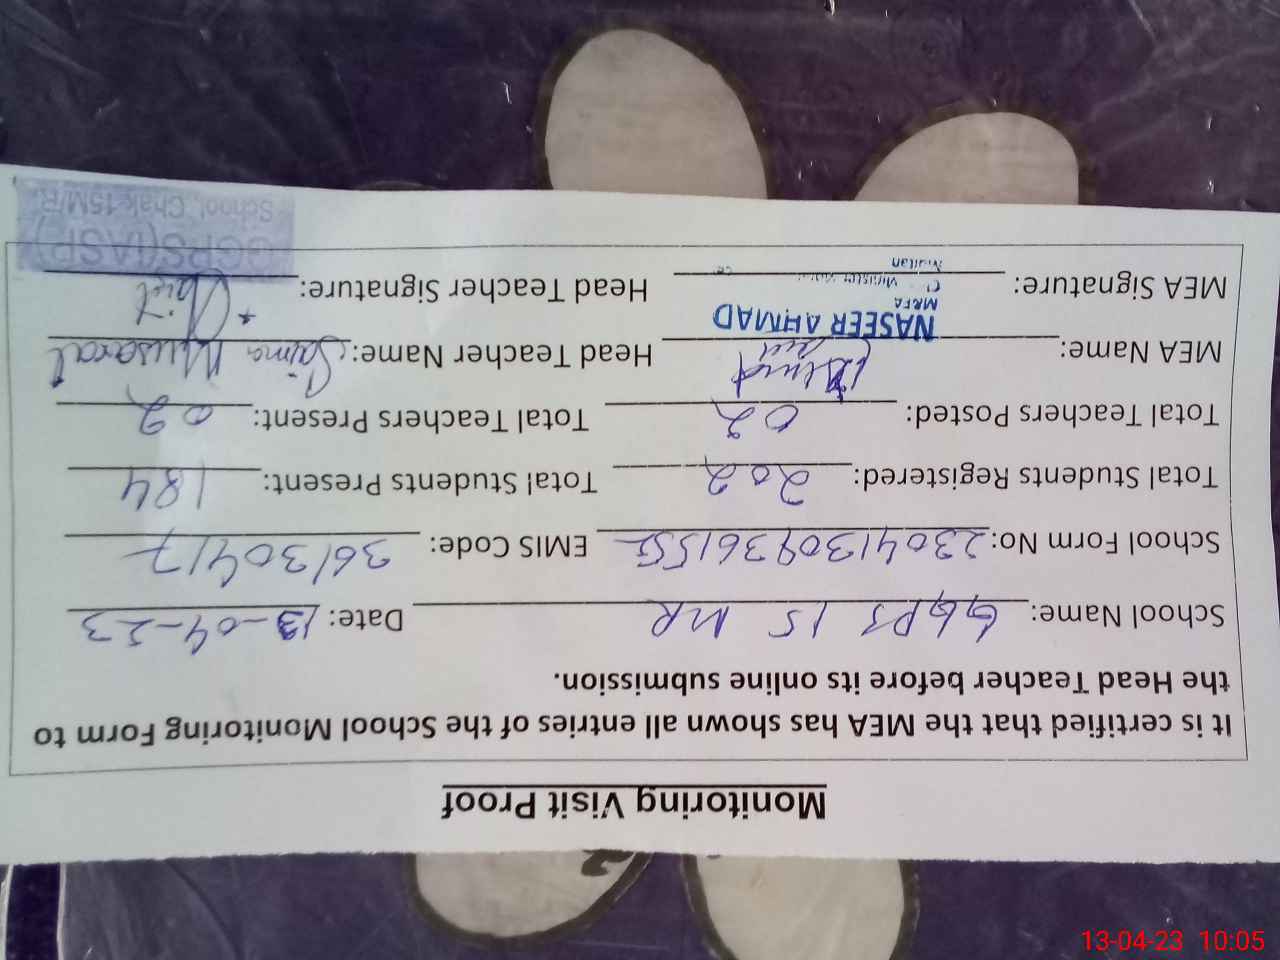 Monitoring Visit Proof
It is certified that the MEA has shown all entries of the School Monitoring Form to
the Head Teacher before its online submission.
School Name: GGPS 15 MR Date: 13-04-23
School Form No: 23041309361555 EMIS Code: 36130417
Total Students Registered: 202 Total Students Present: 184
Total Teachers Posted: 02 Total Teachers Present: 02
MEA Name: Head Teacher Name: Saima Musarat
NASEER AHMAD
MEA Signature: Head Teacher Signature:
GGPS(IASP)
School, Chak 15M/R
13-04-23 10:05